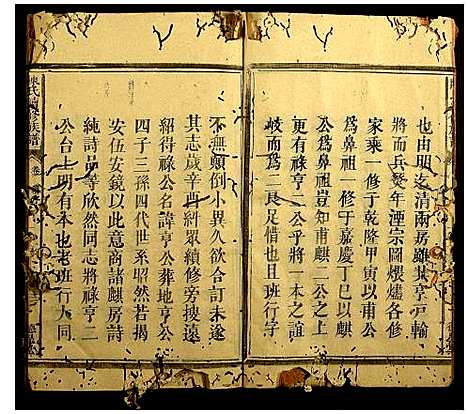 也由明迄清兩房雖其亨戶輸
將而兵燹年湮宗圖煨燼各修
家乘一修于乾隆甲寅以甫公
爲鼻祖一修于嘉慶丁巳以麒
公爲鼻祖豈知甫麒二公之上
更有祿亨二公乎將一本之誼
岐而爲二良足惜也且班行字
不無顛倒小異久欲合訂未遂
其志歲辛酉糾眾續修旁搜遠
紹得祿公名諱亨公葬地亨公
四子三孫四代世系昭然若揭
安伍安鏡以此意商諸麒房詩
純詩品等欣然同志將祿亨二
公台上明有本也老班行大同
氏續修族譜
卷